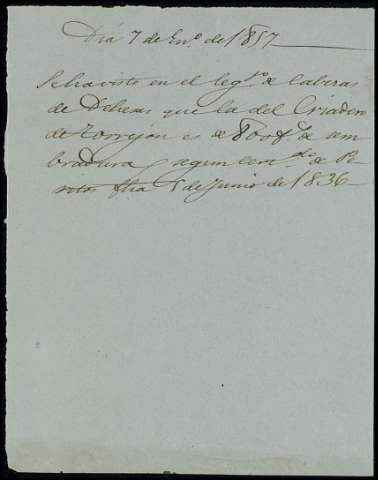 Día 7 de En.º de 1857
Se ha visto en el leg.º de cabezas
de Dehesas que la del Criadero
de Torrejon es de 860 f.s de sem
bradura, segun cert.on de Pe
ritos fha 5 de Junio de 1836